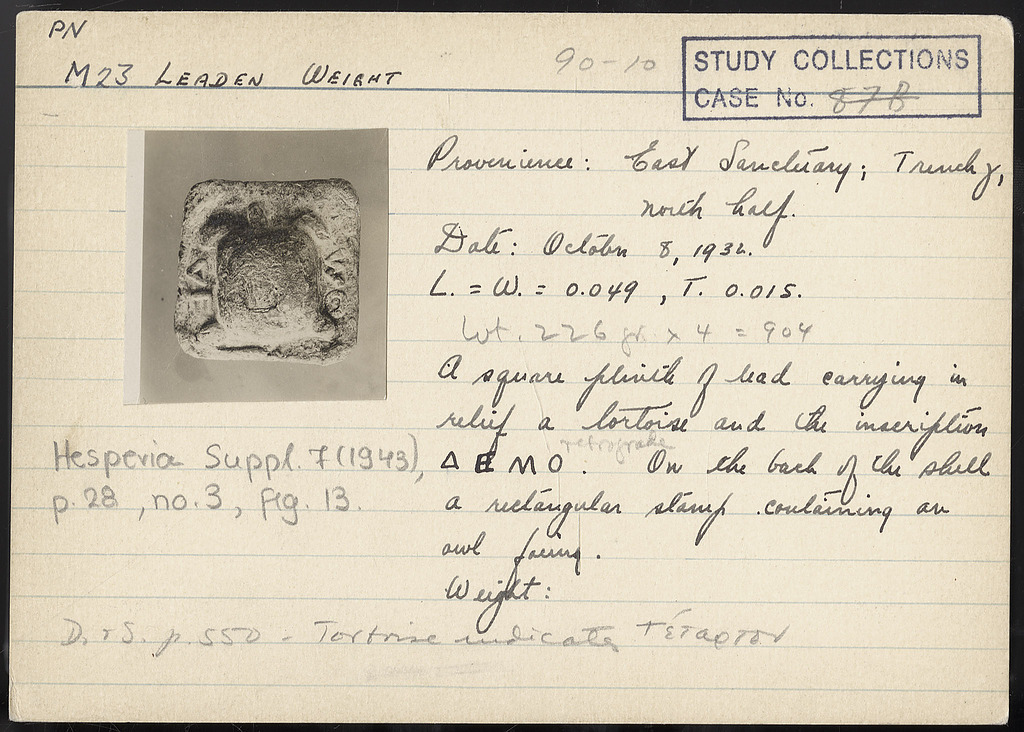 PN
M23 LEADEN WEIGHT
90-10
STUDY COLLECTIONS
CASE No. 87B
Provenience: East Sanctuary; Trench J,
north half.
Date: October 8, 1932.
L. = W. = 0.049, T. 0.015.
Wt. 226 gr. x 4 = 904
A square plinth of lead carrying in
relief a tortoise and the inscription
retrograde
ΔEMO. On the back of the shell
a rectangular stamp containing an
owl facing.
Weight:
Hesperia Suppl. 7 (1943),
p. 28, no. 3, fig. 13.
D. + S. p. 550 - Tortoise indicates τέταρτον